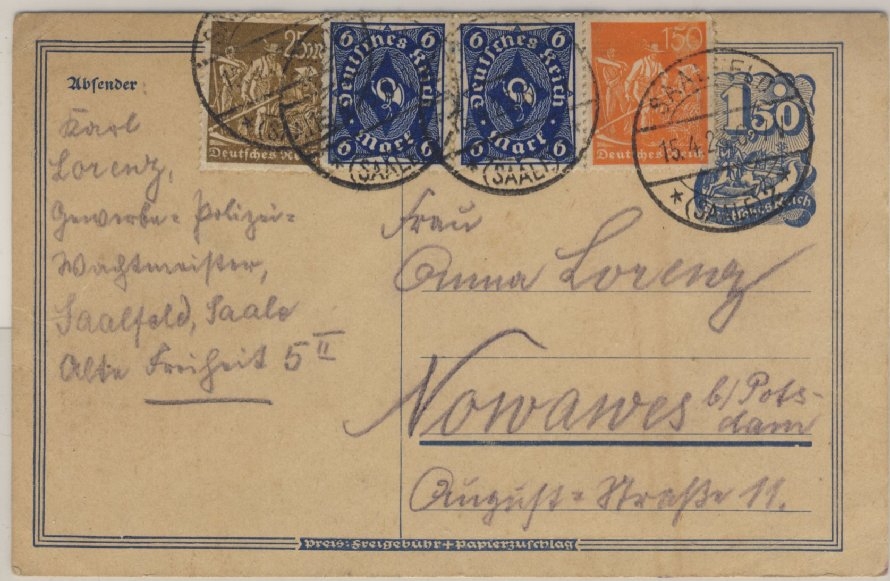 25 M
Deutsches Reich
6 6
Deutsches Reich
Mark
6 6
6 6
Deutsches Reich
Mark
6 6
150
Deutsches Reich
1 50
Deutsches Reich
SAALFELD
15.4.2
(SAALE)
(SAALE)
(SAALE)
Absender
Karl
Lorenz,
Gewerbe-Polizei-
Wachtmeister,
Saalfeld, Saale
Alte Freiheit 5 II
Frau
Anna Lorenz
Nowawes b/Pots-
dam
August-Straße 11.
Preis: Freigebühr + Papierzuschlag